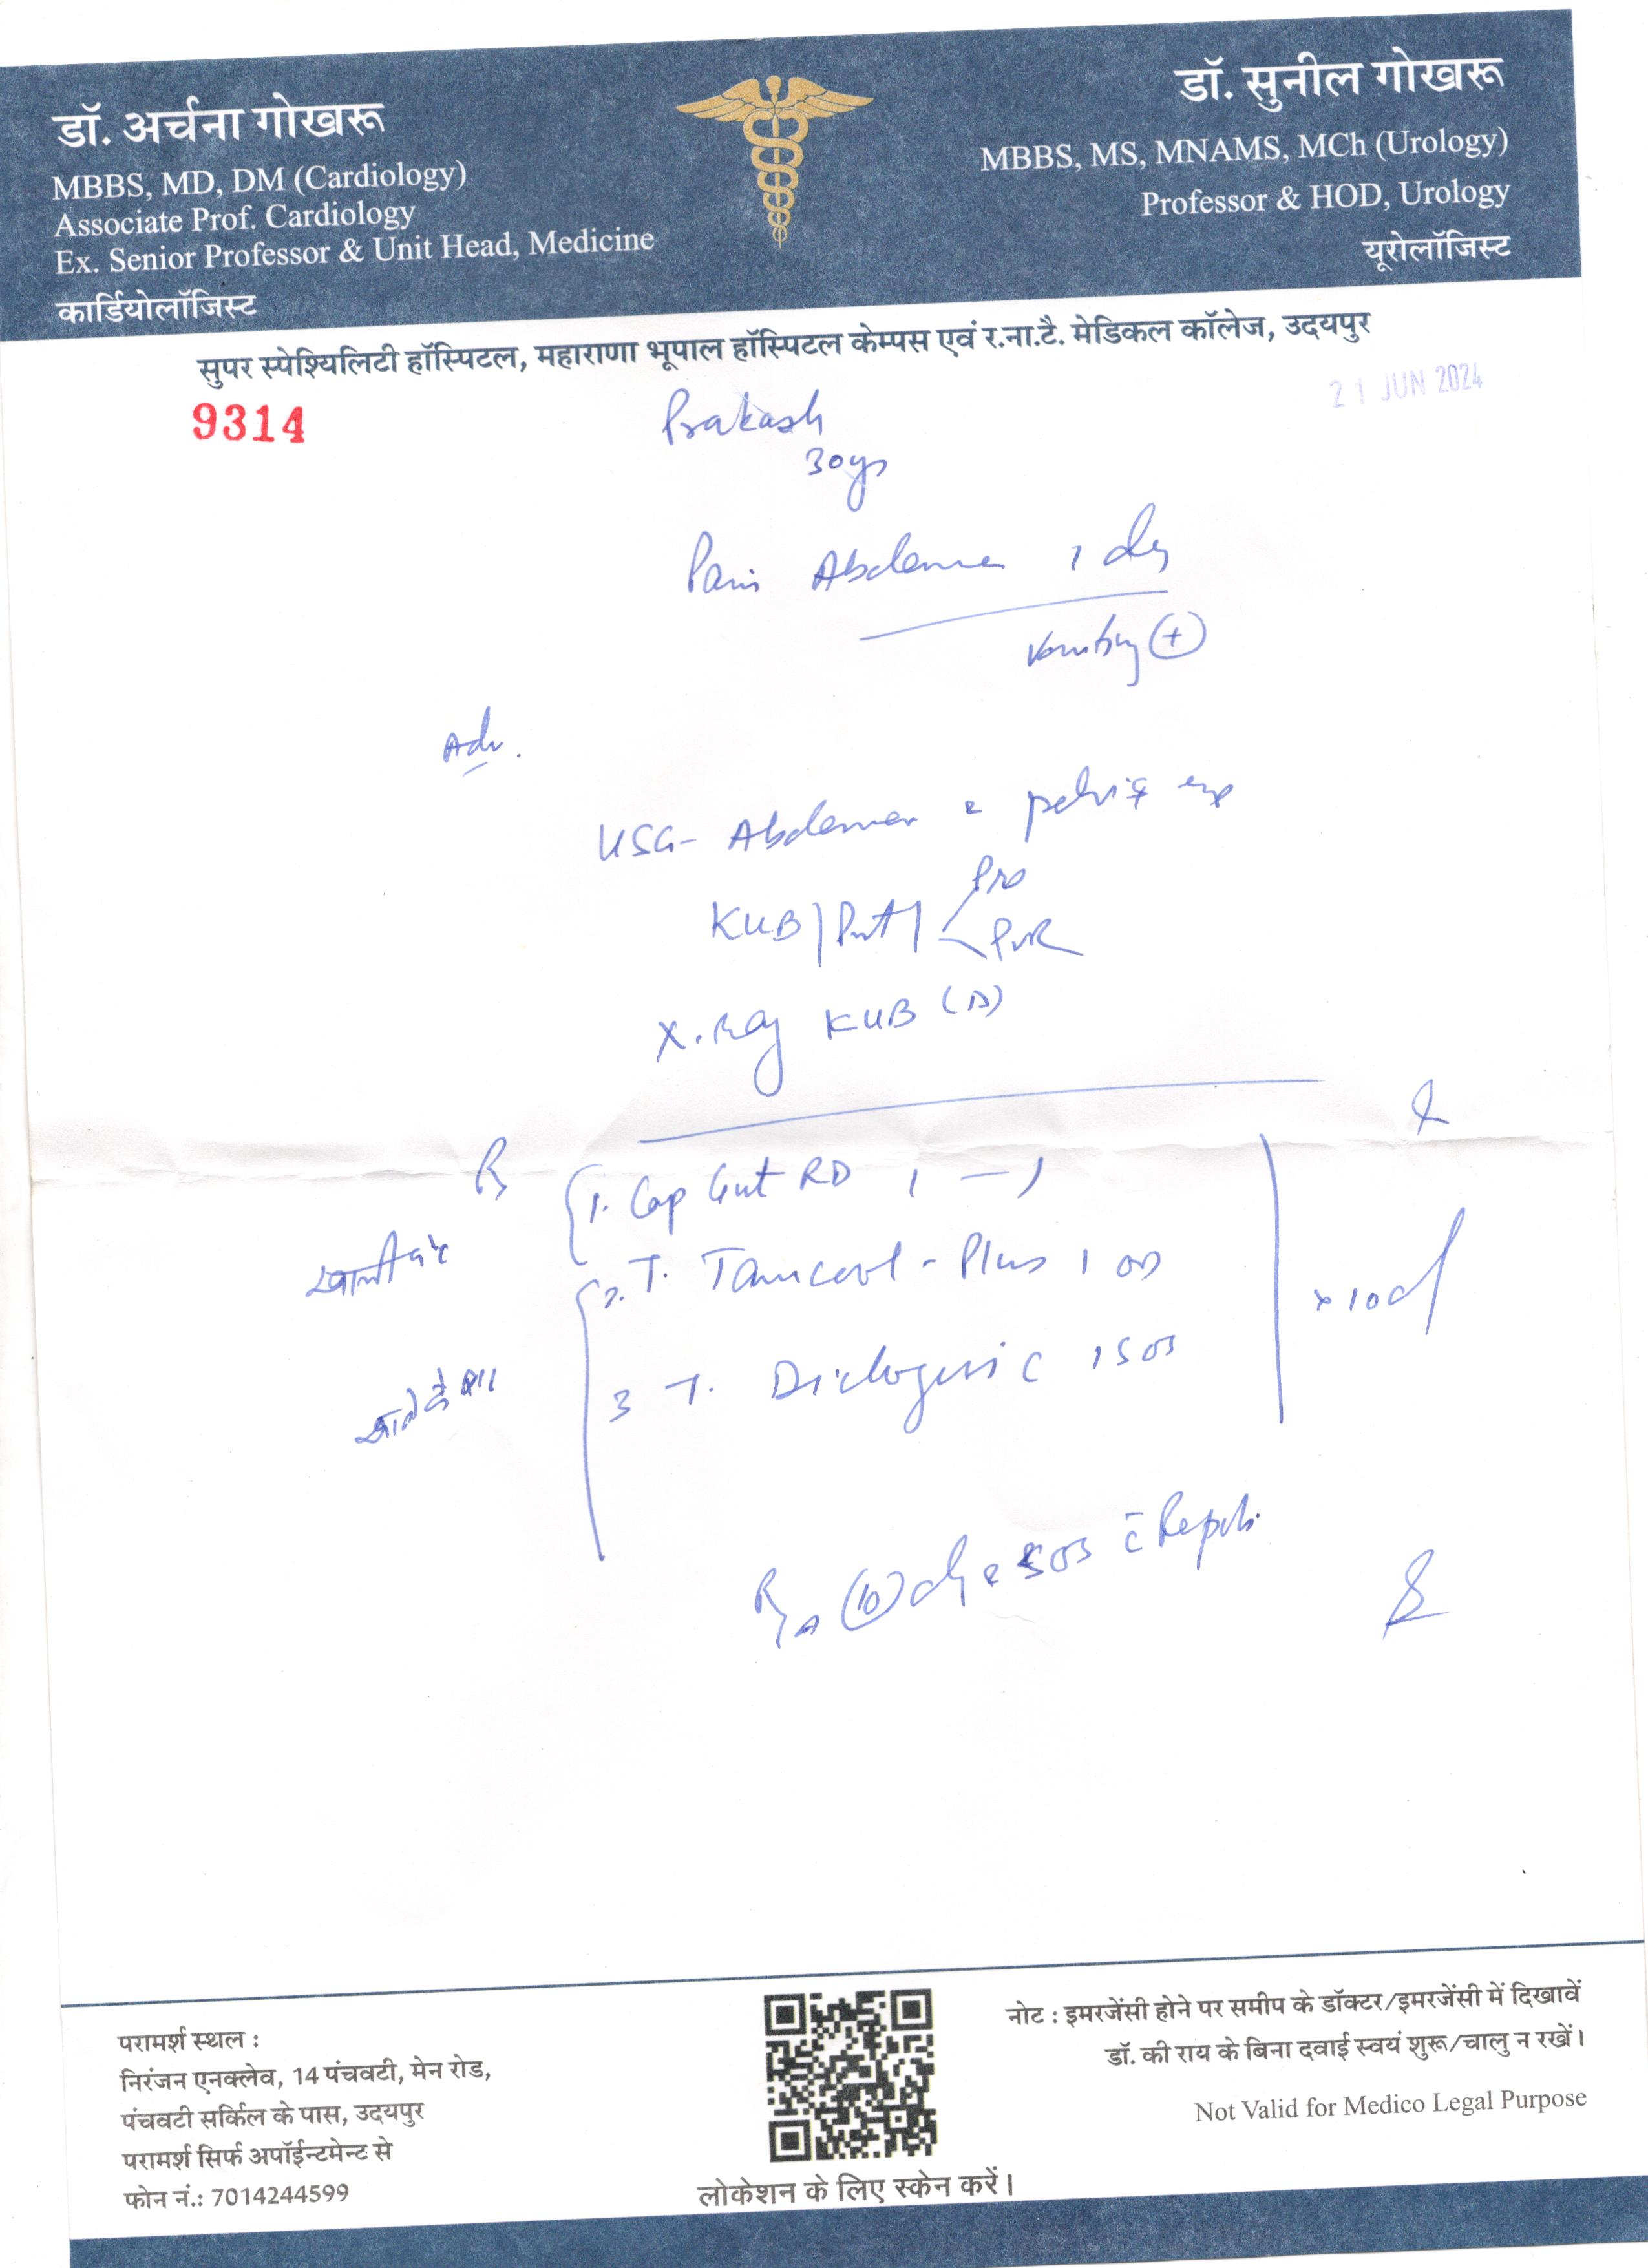 डॉ. अर्चना गोखरू
MBBS, MD, DM (Cardiology)
Associate Prof. Cardiology
Ex. Senior Professor & Unit Head, Medicine
कार्डियोलॉजिस्ट
डॉ. सुनील गोखरू
MBBS, MS, MNAMS, MCh (Urology)
Professor & HOD, Urology
यूरोलॉजिस्ट
सुपर स्पेश्यिलिटी हॉस्पिटल, महाराणा भूपाल हॉस्पिटल केम्पस एवं र.ना.टै. मेडिकल कॉलेज, उदयपुर
9314
21 JUN 2024
Prakash
30 yrs
Pain Abdomen 1 day
Vomiting (+)
Adv.
USG- Abdomen pelvis
KUB/ Pro
PVR
X.Ray KUB (D)
1. Cap Gut RD 1 — 1
खाली पेट
2. T. Plus 1 OD
x 10 d
3 T. 1 SOS
खाने के बाद
(10) day SOS c̄ Reports
परामर्श स्थल :
निरंजन एनक्लेव, 14 पंचवटी, मेन रोड,
पंचवटी सर्किल के पास, उदयपुर
परामर्श सिर्फ अपॉईन्टमेन्ट से
फोन नं.: 7014244599
लोकेशन के लिए स्केन करें।
नोट : इमरजेंसी होने पर समीप के डॉक्टर/इमरजेंसी में दिखावें
डॉ. की राय के बिना दवाई स्वयं शुरू/चालु न रखें।
Not Valid for Medico Legal Purpose